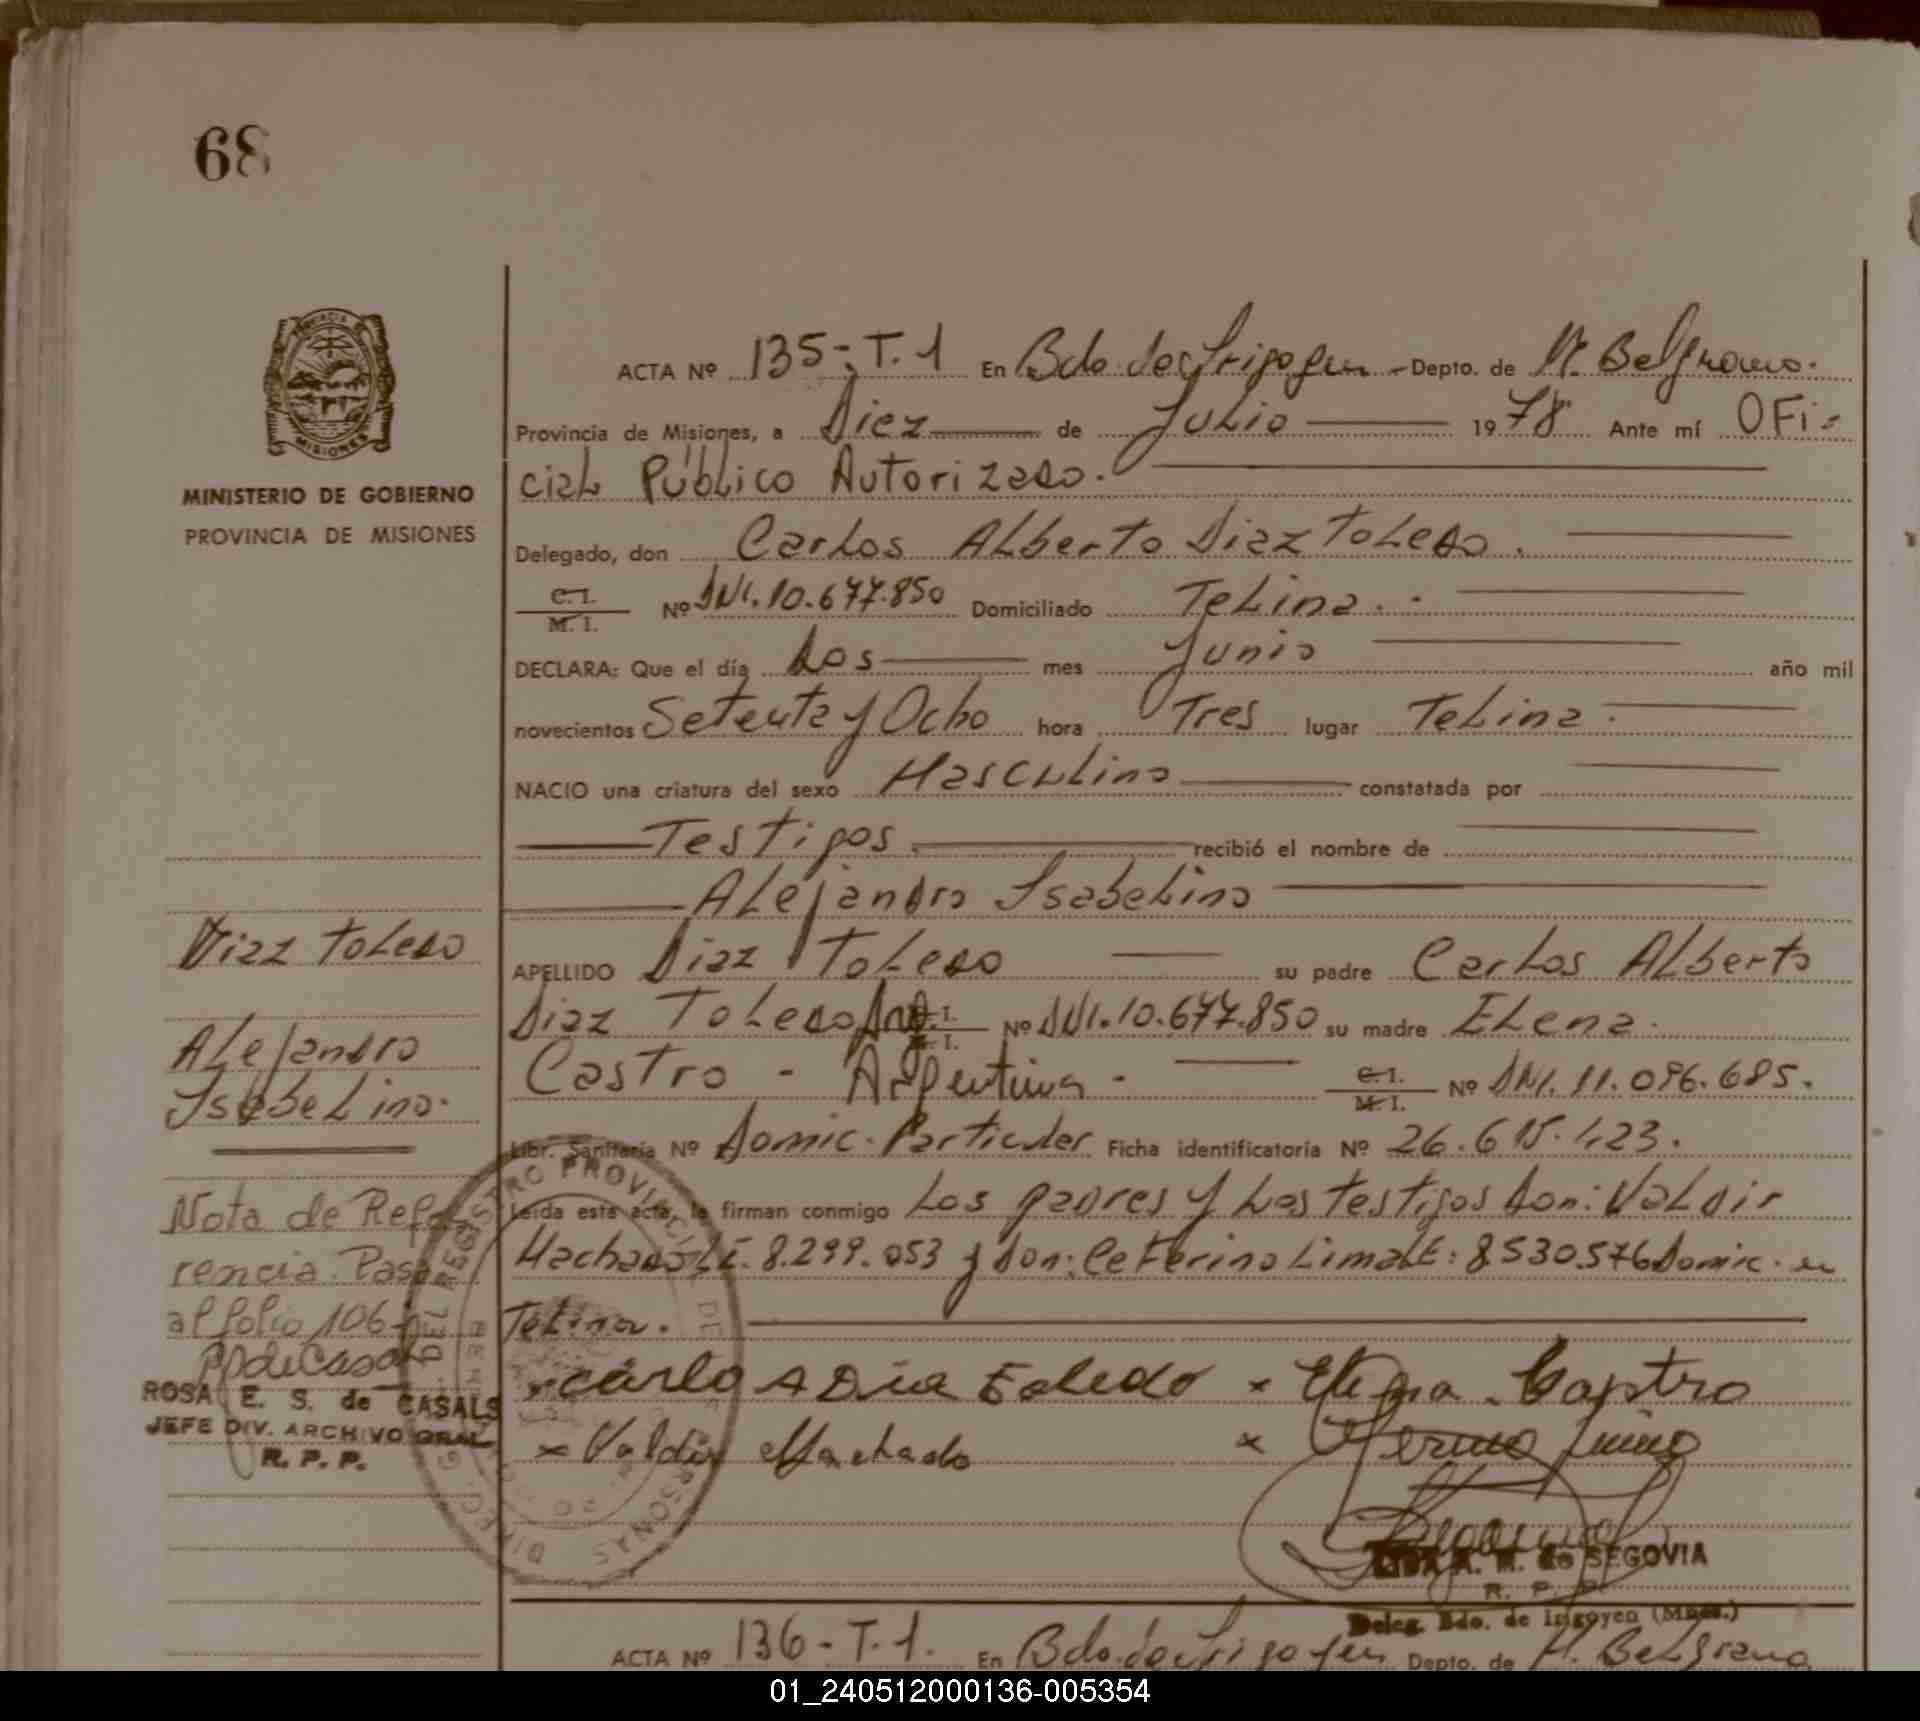 68
PROVINCIA DE
MISIONES
MINISTERIO DE GOBIERNO
PROVINCIA DE MISIONES
ACTA Nº 135-T.1 En Bdo. de Irigoyen - Depto. de M. Belgrano.
Provincia de Misiones, a Diez de Julio 1978 Ante mí OFi-
ciaL Público Autorizado.
Delegado, don CarLos ALberto Diaz ToLedo.
C. I.
M. I. Nº DNI. 10.677.850 Domiciliado TeLina. -
DECLARA: Que el día Dos mes Junio año mil
novecientos Setenta y Ocho hora Tres lugar TeLina.
NACIO una criatura del sexo MascuLino constatada por
Testigos. recibió el nombre de
ALejandro IsabeLino
APELLIDO Diaz ToLedo su padre CarLos ALberto
Diaz ToLedo Arg. C. I. M. I. Nº DNI. 10.677.850 su madre ELena
Castro - Argentina - C. I. M. I. Nº DNI. 11.096.685.
Libr. Sanitaria Nº Domic. Particular Ficha identificatoria Nº 26.615.423.
Leída esta acta, la firman conmigo Los padres y Los testigos Don: VaLdir
Machado LE. 8.299.053 y Don: CeFerino Lima LE: 8.530.576 Domic. en
TeLina.
Carlo A Dia Toledo x Elena Castro
x Valdir Machado x
LIDIA A. M. de SEGOVIA
R. P. P.
Deleg. Bdo. de Irigoyen (Mnes.)
Diaz ToLedo
ALejandro
IsabeLino.
Nota de Refe
rencia. Pasa
al folio 106-
ROSA E. S. de CASALS
JEFE DIV. ARCHIVO GRAL
R. P. P.
DIREC. G. DEL REGISTRO PROVINCIAL DE PERSONAS
ACTA Nº 136-T.1. En Bdo. de Irigoyen Depto. de M. BeLgrano
01_240512000136-005354